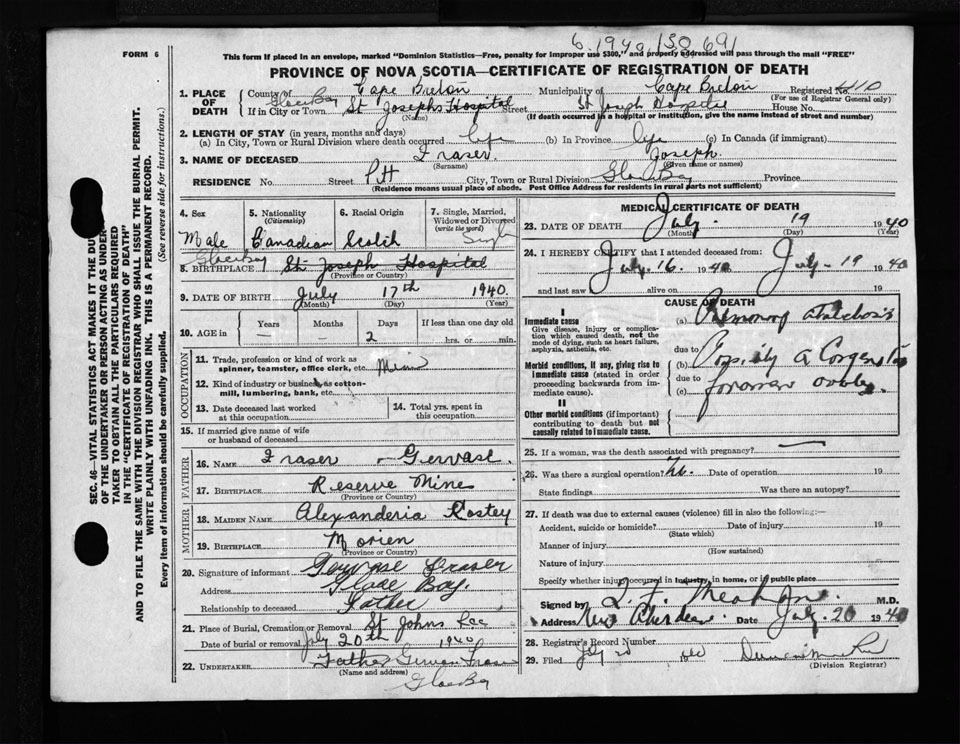 6.1940 150691
FORM 6
This form if placed in an envelope, marked "Dominion Statistics—Free, penalty for improper use $300," and properly addressed will pass through the mail "FREE"
PROVINCE OF NOVA SCOTIA—CERTIFICATE OF REGISTRATION OF DEATH
SEC. 46—VITAL STATISTICS ACT MAKES IT THE DUTY
OF THE UNDERTAKER OR PERSON ACTING AS UNDER-
TAKER TO OBTAIN ALL THE PARTICULARS REQUIRED
IN THE "CERTIFICATE OF REGISTRATION OF DEATH"
AND TO FILE THE SAME WITH THE DIVISION REGISTRAR WHO SHALL ISSUE THE BURIAL PERMIT.
WRITE PLAINLY WITH UNFADING INK. THIS IS A PERMANENT RECORD.
Every item of information should be carefully supplied. (See reverse side for instructions.)
1. PLACE OF DEATH County of Cape Breton Municipality of Cape Breton Registered No. 110
(For use of Registrar General only)
If in City or Town Glace Bay St Josephs Hospital Street St Joseph Hospital House No.
(Name) (If death occurred in a hospital or institution, give the name instead of street and number)
2. LENGTH OF STAY (in years, months and days)
(a) In City, Town or Rural Division where death occurred life (b) In Province life (c) In Canada (if immigrant)
3. NAME OF DECEASED Fraser Joseph
(Surname) (Given name or names)
RESIDENCE No. Street City, Town or Rural Division Glace Bay Province
(Residence means usual place of abode. Post Office Address for residents in rural parts not sufficient)
4. Sex Male
5. Nationality (Citizenship) Canadian
6. Racial Origin Scotch
7. Single, Married, Widowed or Divorced (write the word) Single
8. BIRTHPLACE Glace Bay St. Joseph Hospital
(Province or Country)
9. DATE OF BIRTH July 17th 1940
(Month) (Day) (Year)
10. AGE in Years Months Days If less than one day old
– – 2 hrs. or min.
OCCUPATION
11. Trade, profession or kind of work as spinner, teamster, office clerk, etc.
12. Kind of industry or business, as cotton-mill, lumbering, bank, etc.
13. Date deceased last worked at this occupation
14. Total yrs. spent in this occupation
15. If married give name of wife or husband of deceased
FATHER
16. NAME Fraser - Gervase
17. BIRTHPLACE Reserve Mine
(Province or Country)
MOTHER
18. MAIDEN NAME Alexanderia
19. BIRTHPLACE Morien
(Province or Country)
20. Signature of informant Gervase Fraser
Glace Bay
Relationship to deceased Father
21. Place of Burial, Cremation or Removal St Johns
Date of burial or removal July 20th 1940
22. UNDERTAKER Father Gervase Fraser
(Name and address)
Glace Bay
MEDICAL CERTIFICATE OF DEATH
23. DATE OF DEATH July 19 1940
(Month) (Day) (Year)
24. I HEREBY CERTIFY that I attended deceased from:
July 16 1940 July 19 1940
and last saw alive on 19
CAUSE OF DEATH
I
Immediate cause
Give disease, injury or complication which caused death, not the mode of dying, such as heart failure, asphyxia, asthenia, etc.
(a)
due to
Morbid conditions, if any, giving rise to immediate cause (stated in order proceeding backwards from immediate cause).
due to
(c) foramen
II
Other morbid conditions (if important) contributing to death but not causally related to immediate cause.
25. If a woman, was the death associated with pregnancy?
26. Was there a surgical operation? No. Date of operation 19
State findings Was there an autopsy?
27. If death was due to external causes (violence) fill in also the following:—
Accident, suicide or homicide? Date of injury 19
(State which)
Manner of injury
(How sustained)
Nature of injury
Specify whether injury occurred in industry, in home, or in public place
Signed by M.D.
Address New Aberdeen Date July 20 1940
28. Registrar's Record Number
29. Filed July 20 1940
(Division Registrar)